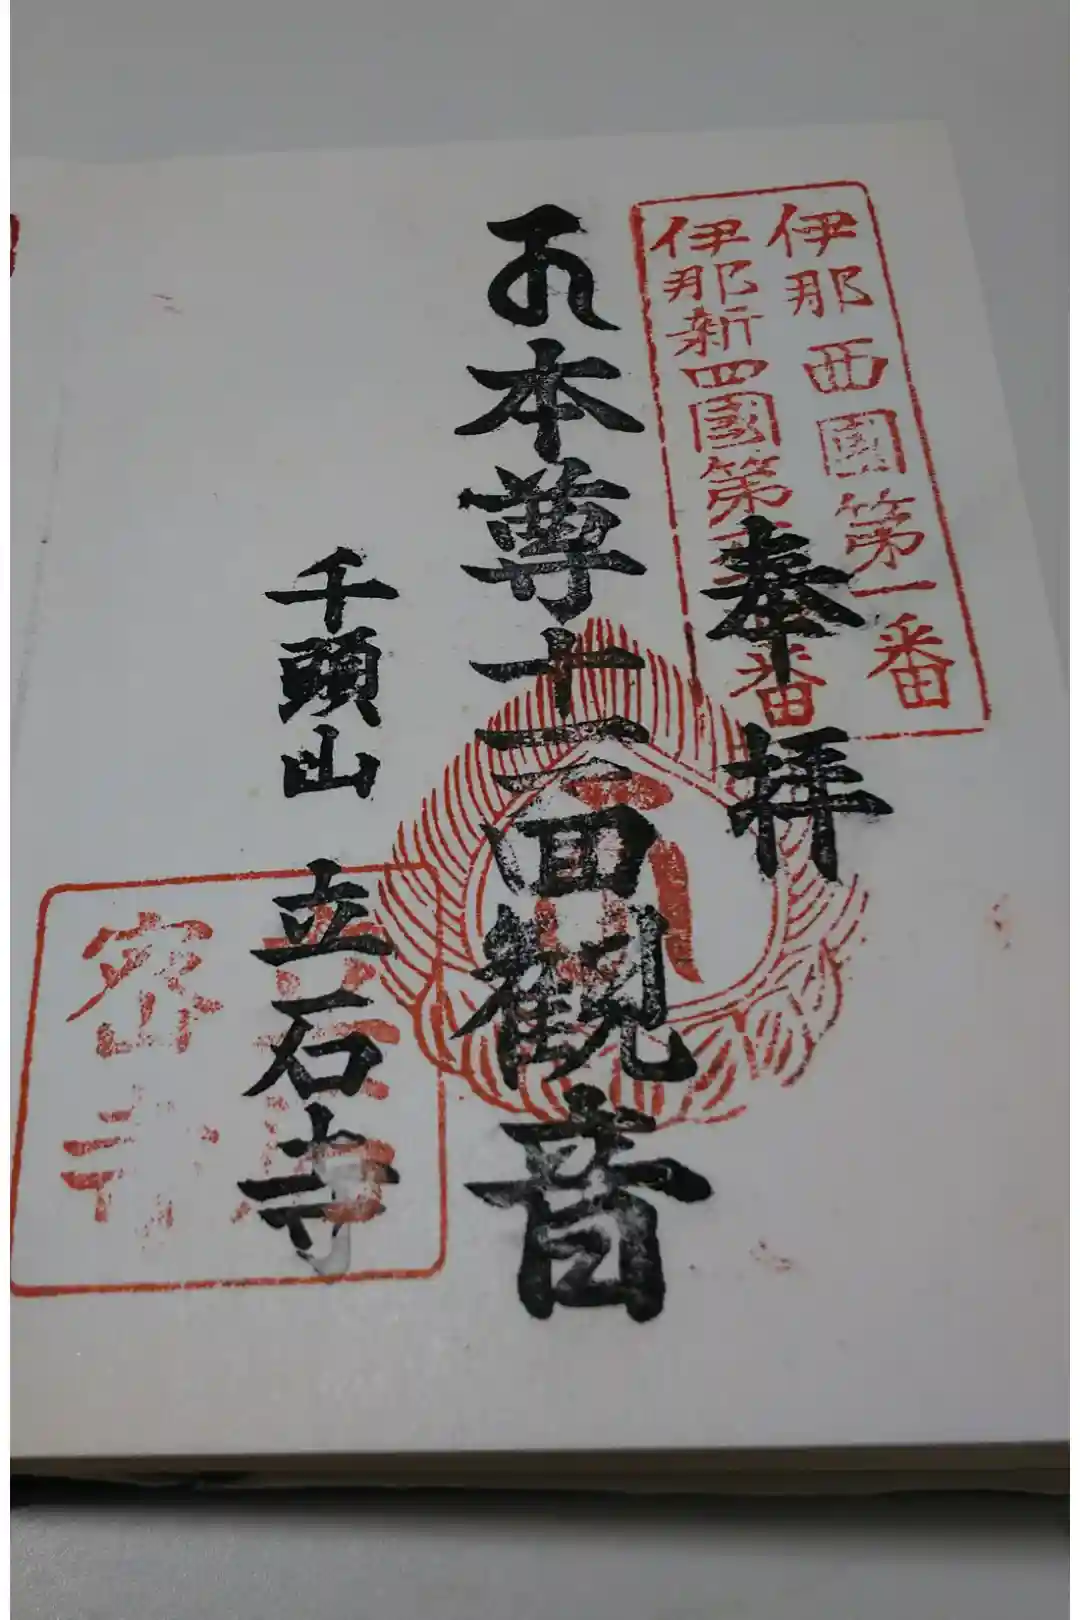 伊那西國第一番
伊那新四國第 番
奉拝
本尊十一面觀音
千頭山 立石寺
密寺